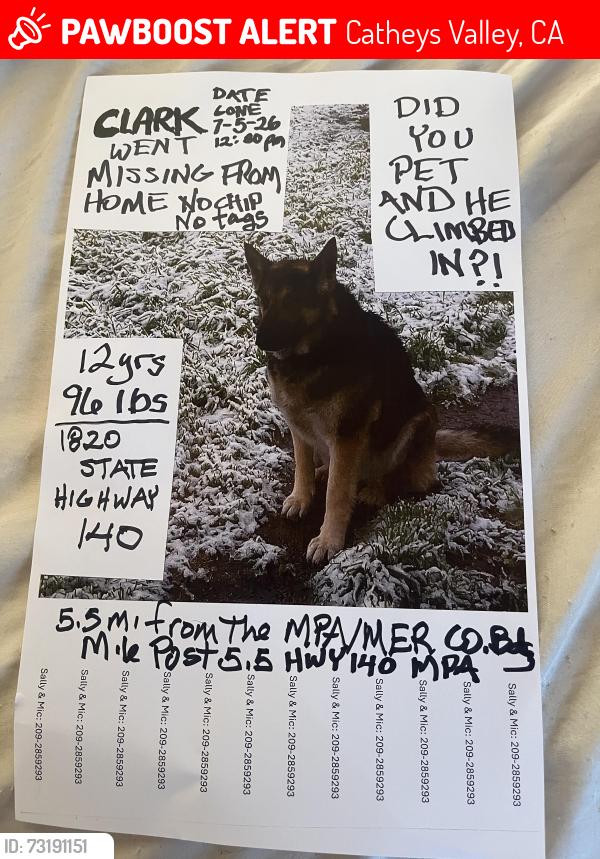 PAWBOOST ALERT Catheys Valley, CA
CLARK
WENT
MISSING FROM
HOME NO CHIP
No tags
DATE
GONE
7-5-26
12:00pm
DID
YOU
PET
AND HE
CLIMBED
IN?!
12yrs
96 lbs
1820
STATE
HIGHWAY
140
5.5 Mi from The MPA/MER CO. Bdg
Mile Post 5.5 HWY 140 MPA
Sally & Mic: 209-2859293
Sally & Mic: 209-2859293
Sally & Mic: 209-2859293
Sally & Mic: 209-2859293
Sally & Mic: 209-2859293
Sally & Mic: 209-2859293
Sally & Mic: 209-2859293
Sally & Mic: 209-2859293
Sally & Mic: 209-2859293
Sally & Mic: 209-2859293
Sally & Mic: 209-2859293
Sally & Mic: 209-2859293
ID: 73191151